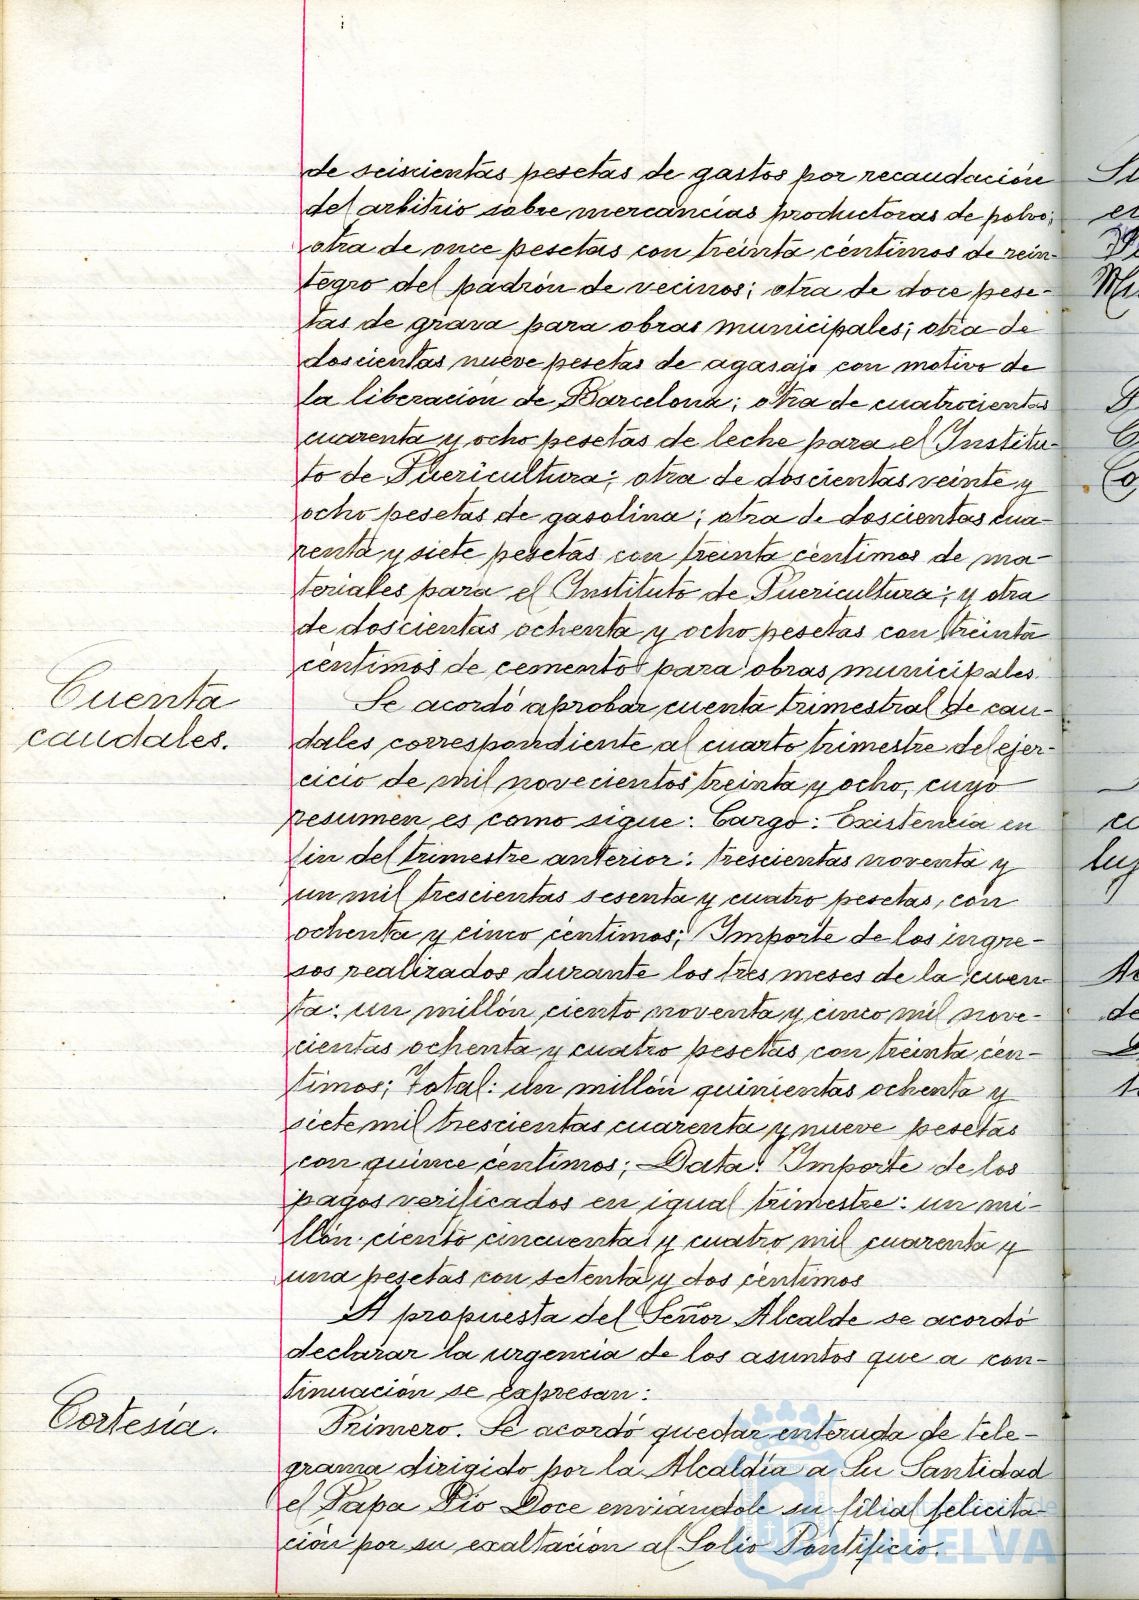 de seiscientas pesetas de gastos por recaudación
del arbitrio sobre mercancías productoras de polvo;
otra de once pesetas con treinta céntimos de rein-
tegro del padrón de vecinos; otra de doce pese-
tas de grava para obras municipales; otra de
doscientas nueve pesetas de agasajo con motivo de
la liberación de Barcelona; otra de cuatrocientas
cuarenta y ocho pesetas de leche para el Institu-
to de Puericultura; otra de doscientas veinte y
ocho pesetas de gasolina; otra de doscientas cua-
renta y siete pesetas con treinta céntimos de ma-
teriales para el Instituto de Puericultura; y otra
de doscientas ochenta y ocho pesetas con treinta
céntimos de cemento para obras municipales.
Cuenta
caudales.
Se acordó aprobar cuenta trimestral de cau-
dales correspondiente al cuarto trimestre del ejer-
cicio de mil novecientos treinta y ocho, cuyo
resumen es como sigue: Cargo: Existencia en
fin del trimestre anterior: trescientas noventa y
un mil trescientas sesenta y cuatro pesetas, con
ochenta y cinco céntimos; Importe de los ingre-
sos realizados durante los tres meses de la cuen-
ta: un millón ciento noventa y cinco mil nove-
cientas ochenta y cuatro pesetas con treinta cén-
timos; Total: un millón quinientas ochenta y
siete mil trescientas cuarenta y nueve pesetas
con quince céntimos; Data: Importe de los
pagos verificados en igual trimestre: un mi-
llón ciento cincuenta y cuatro mil cuarenta y
una pesetas con setenta y dos céntimos
A propuesta del Señor Alcalde se acordó
declarar la urgencia de los asuntos que a con-
tinuación se expresan:
Cortesía.
Primero. Se acordó quedar enterada de tele-
grama dirigido por la Alcaldía a Su Santidad
el Papa Pío Doce enviándole su filial felicita-
ción por su exaltación al Solio Pontificio.
HUELVA